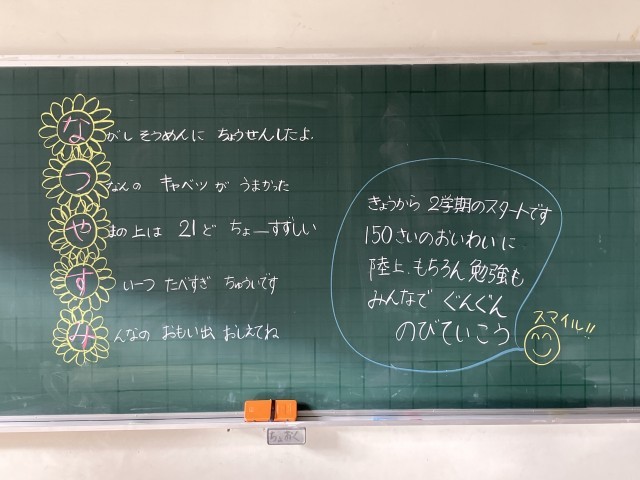 ながしそうめんに ちょうせんしたよ.
つなんの キャベツが うまかった
やまの上は 21ど ちょーすずしい
すいーつ たべすぎ ちゅういです
みんなの おもい出 おしえてね
きょうから 2学期のスタートです
150さいのおいわいに
陸上、もちろん勉強も
みんなで ぐんぐん
のびていこう
スマイル!!